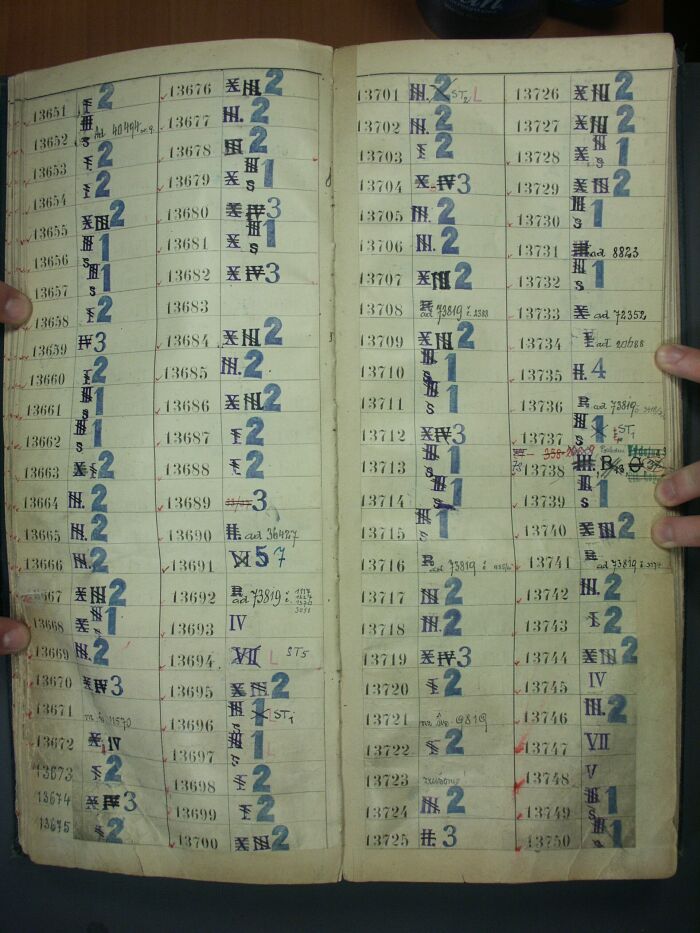 13651 I 2
13652 III S ad 40494
13653 I 2
13654 I 2
13655 X III 2
13656 III S 1
13657 III S 1
13658 I 2
13659 IV 3
13660 I 2
13661 III S 1
13662 III S 1
13663 X I 2
13664 III. 2
13665 III. 2
13666 III. 2
667 X III 2
13668 X III S 1
13669 III. 2
13670 X IV 3
13671 11570
13672 X IV
13673 I 2
13674 X IV 3
13675 I 2
13676 X III 2
13677 III. 2
13678 III 2
13679 X III S 1
13680 X IV 3
13681 X III S 1
13682 X IV 3
13683
13684 X III 2
13685 III. 2
13686 X III 2
13687 I 2
13688 I 2
13689 3
13690 II. ad 36427
13691 VI 5 7
13692 R ad 73819 č.
13693 IV
13694 VII L ST5
13695 X III 2
13696 III S 1 X ST1
13697 III S 1
13698 I 2
13699 I 2
13700 X III 2
13701 III. 2 ST2 L
13702 III. 2
13703 I 2
13704 X IV 3
13705 III. 2
13706 III. 2
13707 X III 2
13708 R ad 73819 č. 2388
13709 X III 2
13710 III S 1
13711 III S 1
13712 X IV 3
13713 III S 1
13714 III S 1
13715 III S 1
13716 R ad 73819 č
13717 III 2
13718 III. 2
13719 X IV 3
13720 I 2
13721 9819
13722 I 2
13723
13724 III. 2
13725 II. 3
13726 X III 2
13727 X III 2
13728 X III S 1
13729 X III 2
13730 III S 1
13731 III ad 8823
13732 III S 1
13733 X ad 72352
13734 I ad 20688
13735 II. 4
13736 R ad 73819 č.
13737 III S 1 X ST1
13738 III. R
13739 III S 1
13740 X III 2
13741 R ad 73819 č.
13742 III. 2
13743 I 2
13744 X III 2
13745 IV
13746 III. 2
13747 VII
13748 V
13749 III S 1
13750 III S 1